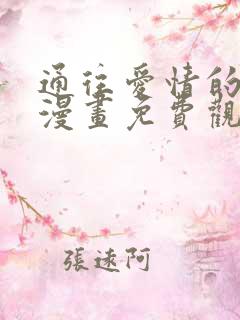 通往愛情的
漫畫免費觀
張逑阿